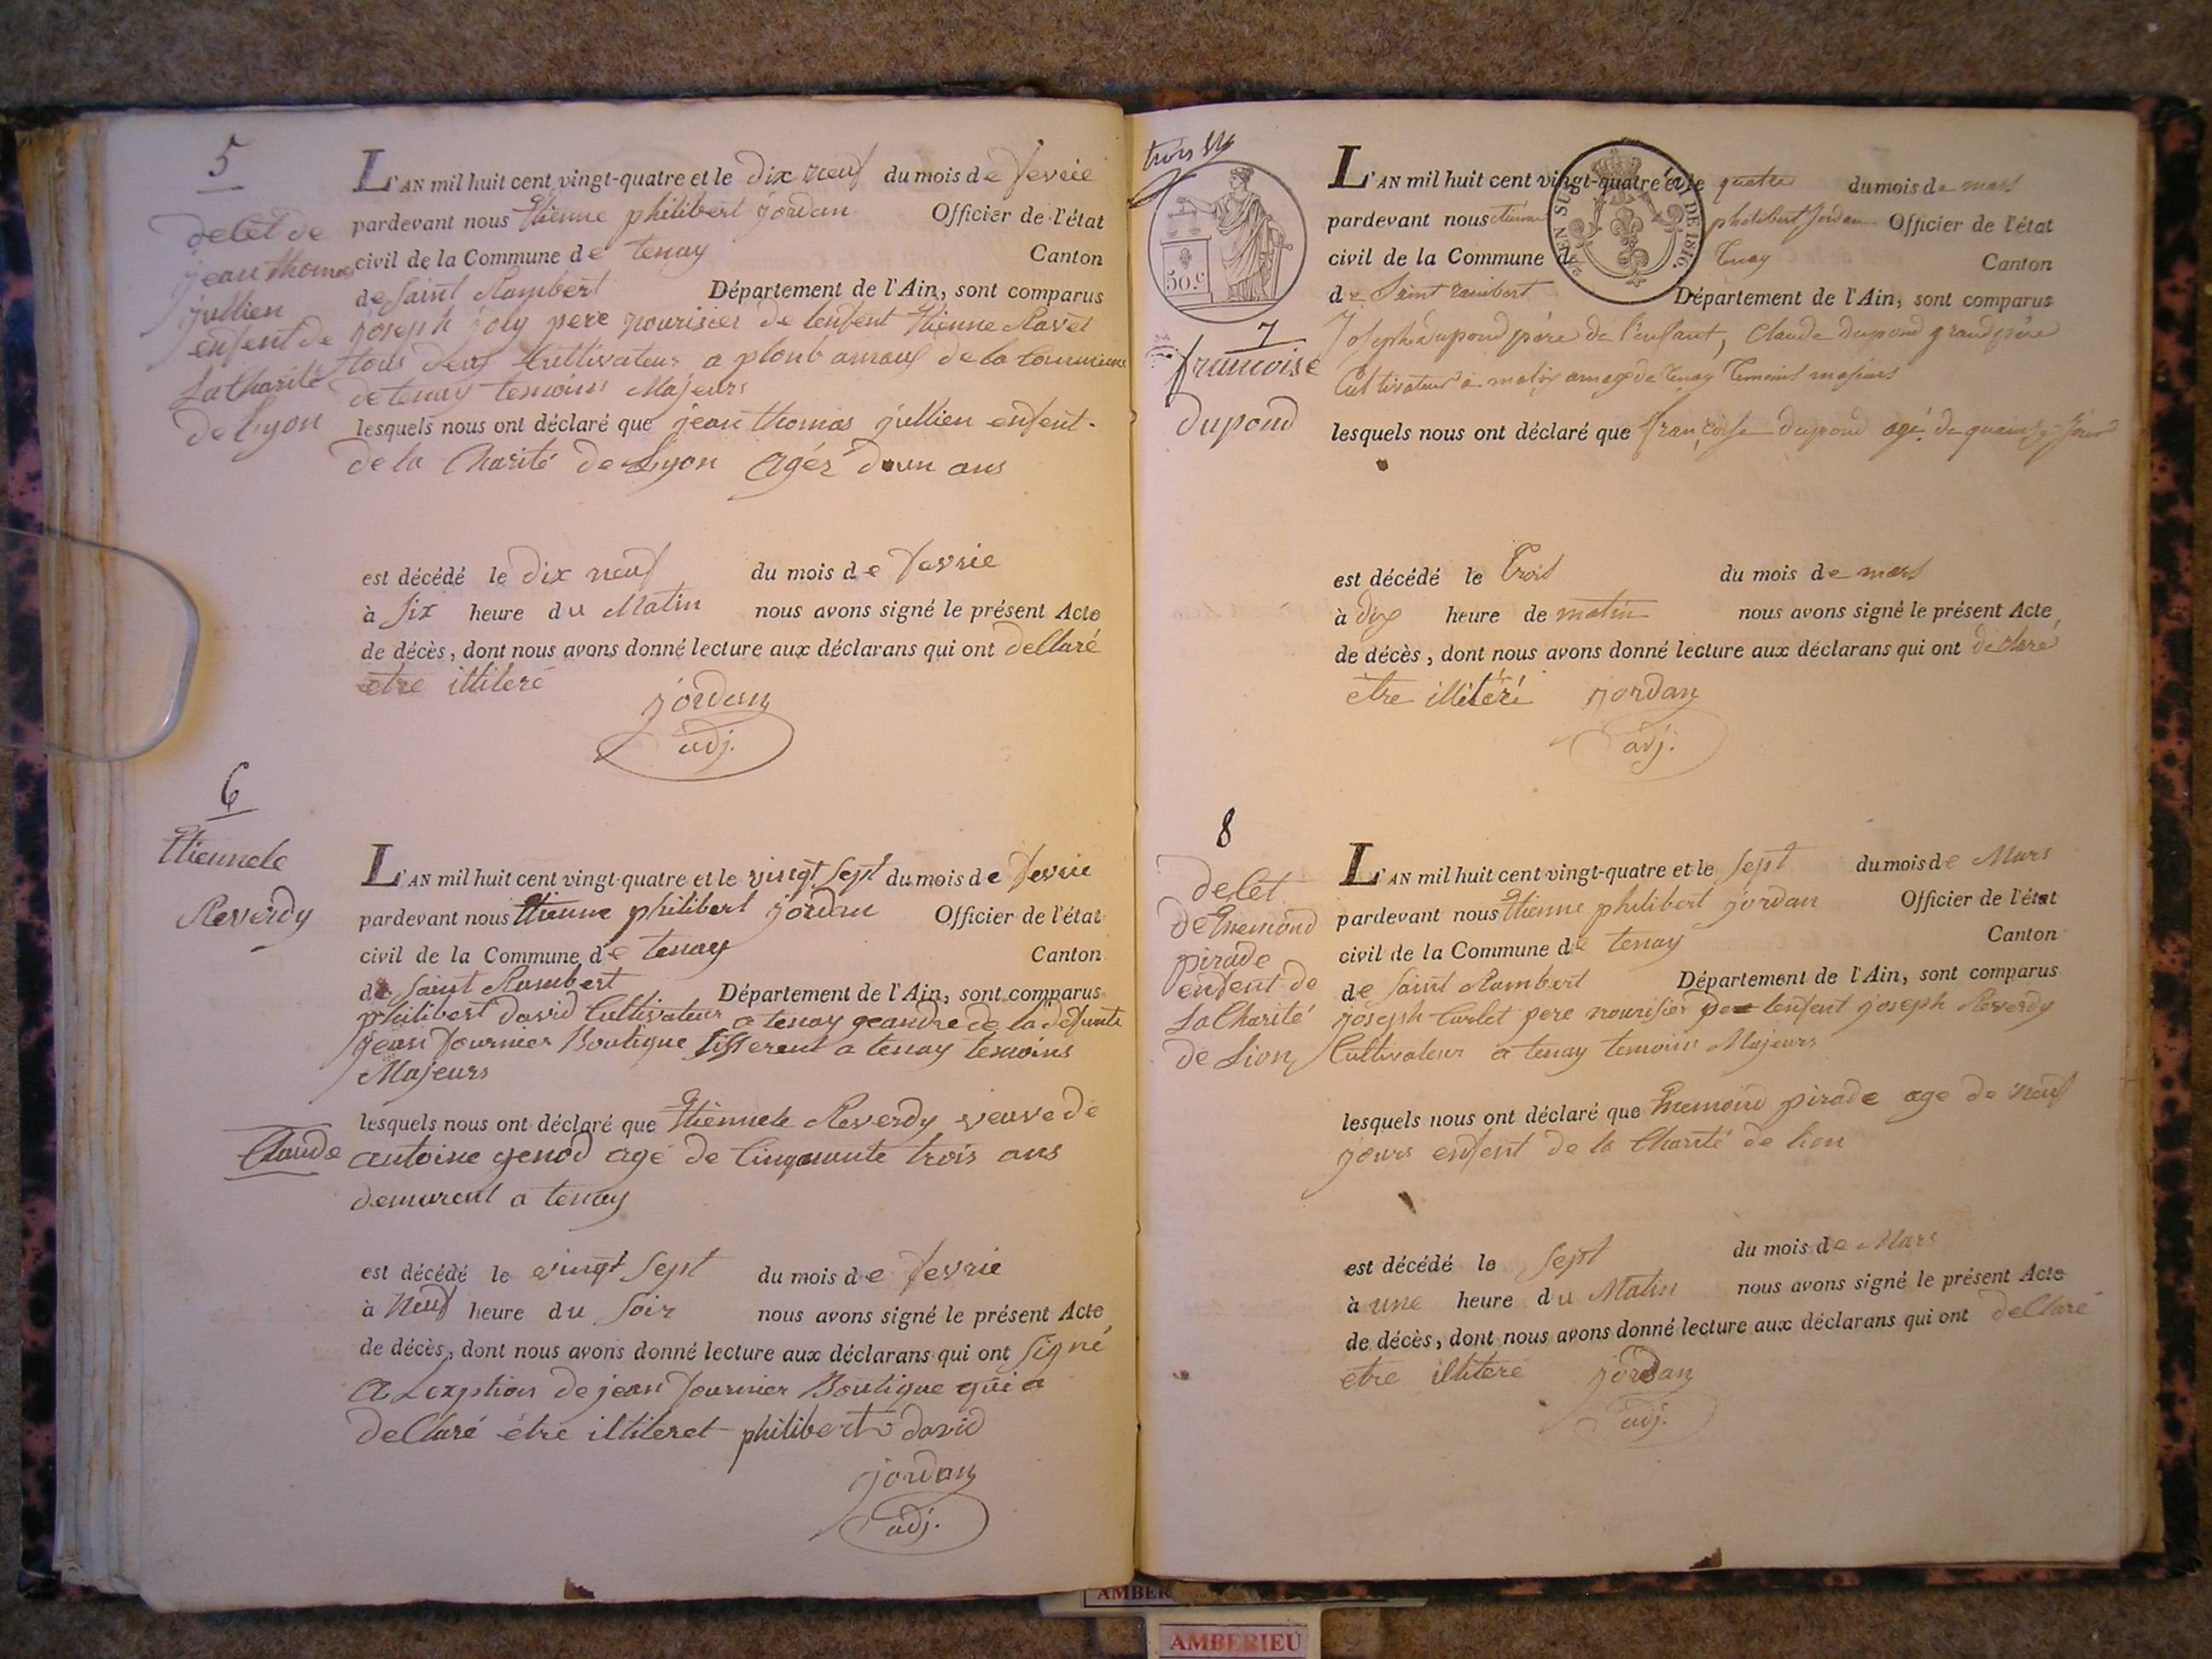 5
delet de
jean thomas
jullien
enfent de
La Charité
de Lyon
L'AN mil huit cent vingt-quatre et le dix neuf du mois de fevrie
pardevant nous Etienne philibert jordan Officier de l'état
civil de la Commune de tenay Canton
de Saint Rambert Département de l'Ain, sont comparus
joseph joly pere nourisier de lenfent Etienne Ravet
tous deux Cultivateur a plont amauf de la Commune
de tenay temoins Majeurs
lesquels nous ont déclaré que jean thomas jullien enfent
de la Charité de Lyon agér d'un ans
est décédé le dix neuf du mois de fevrie
à Six heure du Matin nous avons signé le présent Acte
de décès, dont nous avons donné lecture aux déclarans qui ont declaré
etre illiteré
jordan
adj.
6
Etiennete
Reverdy
L'AN mil huit cent vingt-quatre et le vingt sept du mois de fevrie
pardevant nous Etienne philibert jordan Officier de l'état
civil de la Commune de tenay Canton
de Saint Rambert Département de l'Ain, sont comparus
philibert david Cultivateur a tenay geandre de la defunte
jean fournier Boutique Tisserent a tenay temoins
Majeurs
lesquels nous ont déclaré que Etiennete Reverdy veuve de
Claude antoine genod agé de Cinquante trois ans
demurent a tenay
est décédé le vingt Sept du mois de fevrie
à Neuf heure du Soir nous avons signé le présent Acte
de décès, dont nous avons donné lecture aux déclarans qui ont Signé
a Lexption de jean fournier Boutique qui a
declaré étre illiteret philibert david
jordan
adj.
trois
50.c
TIMBRE
LOI DE 1816.
7
francoise
dupond
L'AN mil huit cent vingt-quatre et le quatre du mois de mars
pardevant nous etienne philibert Jordan Officier de l'état
civil de la Commune de Tenay Canton
de Saint rambert Département de l'Ain, sont comparus
Joseph dupond père de l'enfant, Claude dupond grand père
Cultivateur à malix amex de tenay temoins majeurs
lesquels nous ont déclaré que françoise dupond agé de quainze jour
est décédé le trois du mois de mars
à dix heure de matin nous avons signé le présent Acte
de décès, dont nous avons donné lecture aux déclarans qui ont déclaré
être illitéré jordan
adj.
8
delet
de Enemond
pirade
enfent de
La Charité
de Lion
L'AN mil huit cent vingt-quatre et le Sept du mois de Mars
pardevant nous Etienne philibert jordan Officier de l'état
civil de la Commune de tenay Canton
de Saint Rambert Département de l'Ain, sont comparus
joseph Carlet pere nourisier de lenfent joseph Reverdy
Cultivateur a tenay temoins Majeurs
lesquels nous ont déclaré que Enemond pirade age de neuf
jours enfent de la Charité de lion
est décédé le Sept du mois de Mars
à une heure du Matin nous avons signé le présent Acte
de décès, dont nous avons donné lecture aux déclarans qui ont declaré
etre illiteré jordan
adj.
AMBER
AMBERIEU